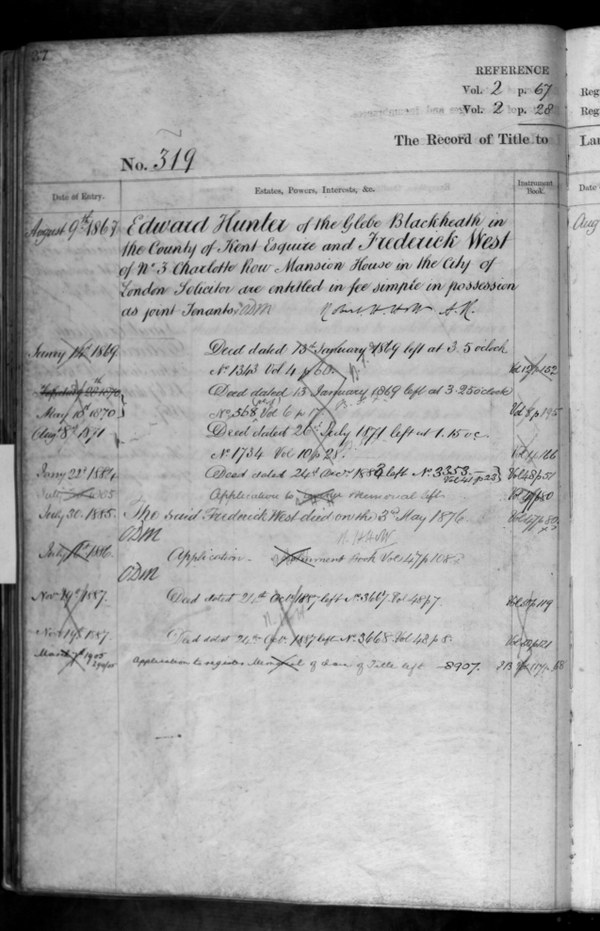 37
REFERENCE
Vol. 2 p. 67
Vol. 2 p. 28
Reg
Reg
The Record of Title to
Lan
No. 319
Date of Entry. Estates, Powers, Interests, &c. Instrument Book.
Date
August 9th 1867 Edward Hunter of the Glebe Blackheath in
Aug
the County of Kent Esquire and Frederick West
of No. 3 Charlotte Row Mansion House in the City of
London Solicitor are entitled in fee simple in possession
as joint Tenants
Janry 14th 1869 Deed dated 13th January 1869 left at 3.5 o'clock
No. 1363 Vol 4 p 60. Vol 15 p 152
Deed dated 13 January 1869 left at 3.25 o'clock
May 18th 1870 No. 368 Vol 6 p 17 Vol 8 p 195
Augt 8th 1871 Deed dated 26th July 1871 left at 1.15 oc
No. 1734 Vol 10 p 28
Janry 22d 1884 Deed dated 24th Decr 1883 left No. 3353 Vol 41 p 23 Vol 48 p 51
Application to Memorial left
July 30. 1885. The said Frederick West died on the 3rd May 1876
ODM
July 1886 Application Book Vol 47 p 108
ODM
Nov 19th 1887. Deed dated 21st Octr 1887 left No. 3667 Vol 48 p 7. p 119
Nov 19th 1887. Deed dated 24th Octr 1887 left No. 3668 Vol 48 p 8. p 121
March 7th 1905 Application to register of of Title left 8907.